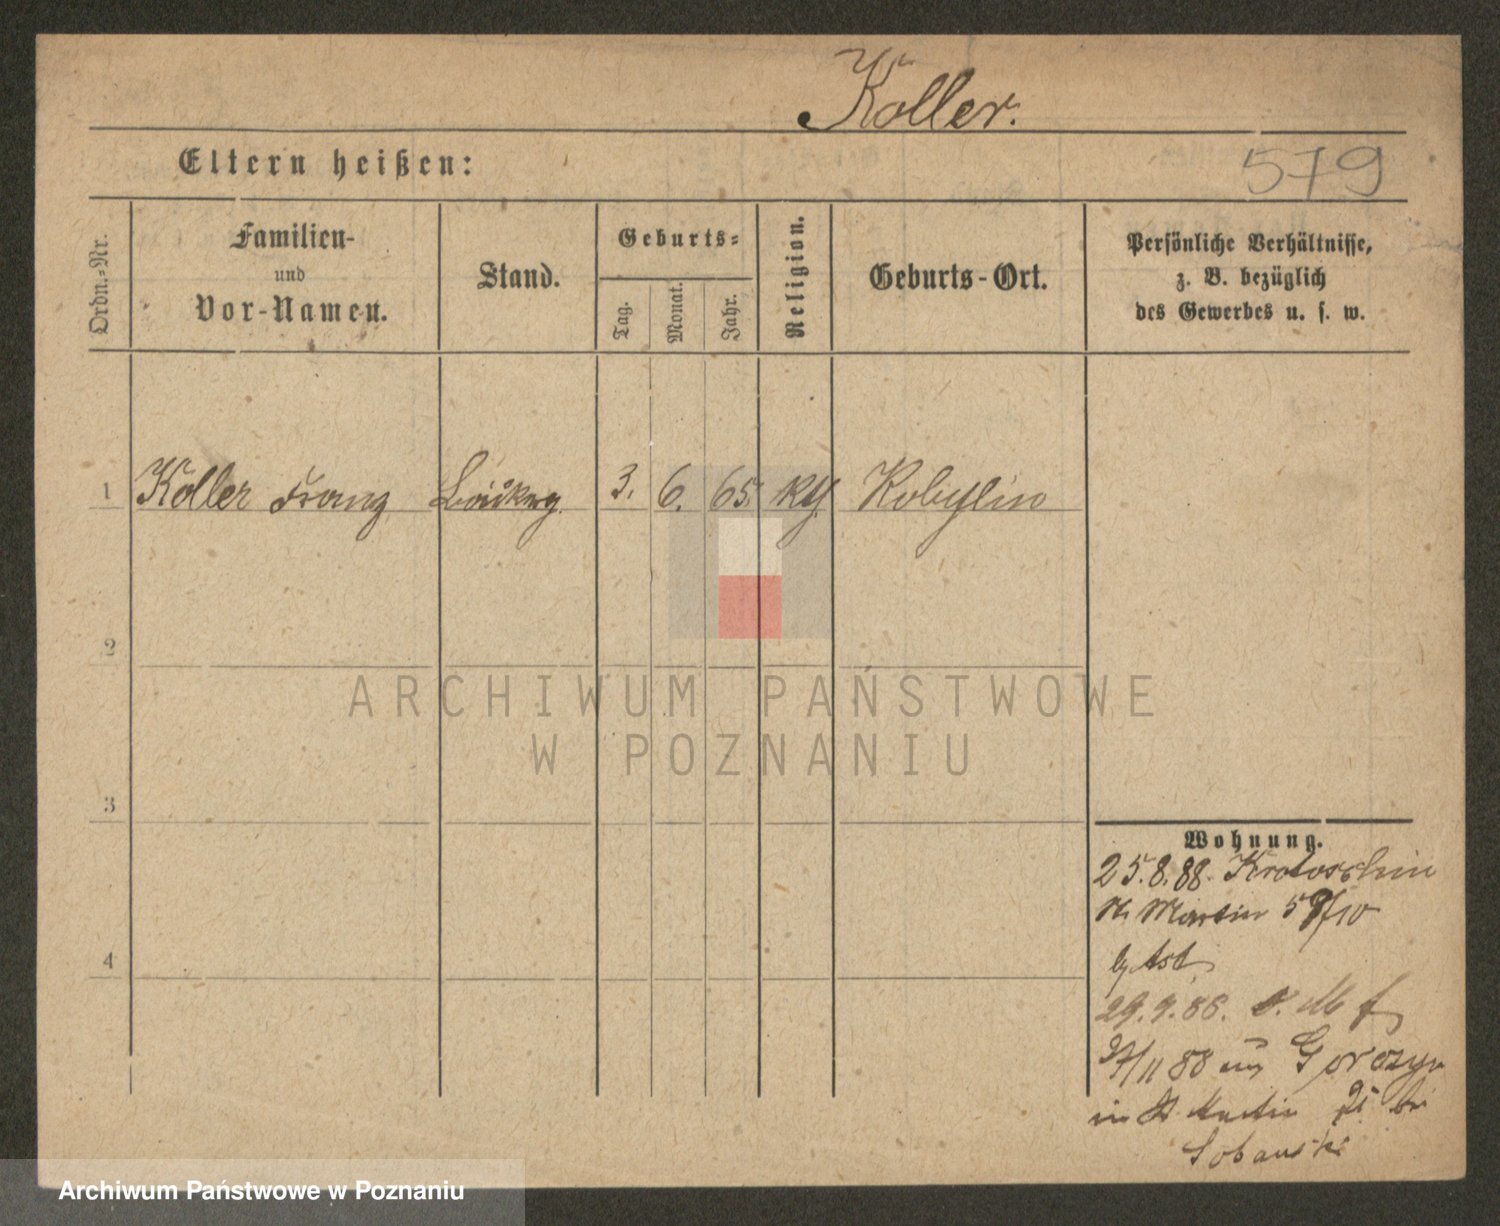 Koller.
Eltern heißen:
579
Ordn.=Nr.
Familien-
und
Vor-Namen.
Stand.
Geburts=
Tag.
Monat.
Jahr.
Religion.
Geburts-Ort.
Persönliche Verhältnisse,
z. B. bezüglich
des Gewerbes u. s. w.
1 Koller Franz 3. 6. 65. Kobylin
2
3
4
Wohnung.
25.8.88. Krotoschin
St. Martin
29.9.88.
88 Gorczyn
in St Martin
ARCHIWUM PAŃSTWOWE
W POZNANIU
Archiwum Państwowe w Poznaniu